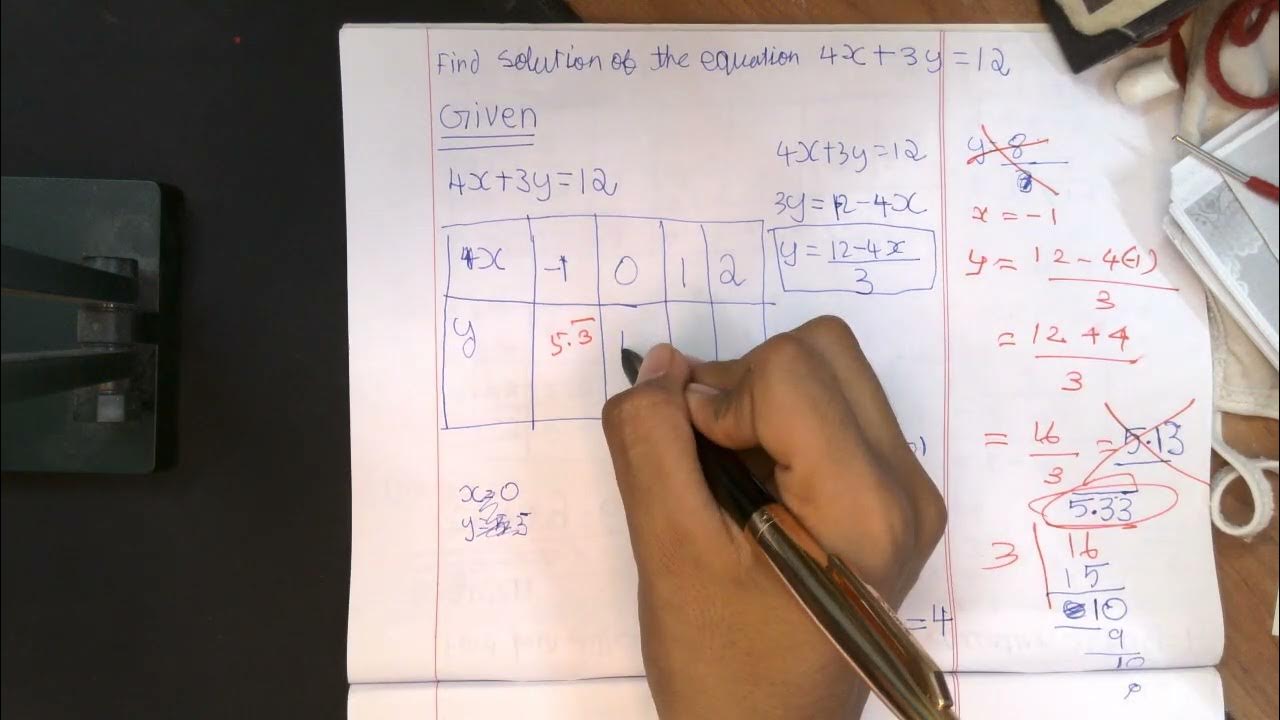 Find solution of the equation 4x+3y=12
Given
4x+3y=12
4x+3y=12
3y=12-4x
y=12-4x
3
4x -1 0 1 2
y 5.3̅
x=0
=4
y 8
x=-1
y=12-4(-1)
3
=12+4
3
=16
3
=5.13
5.33
3 16
15
10
9
10